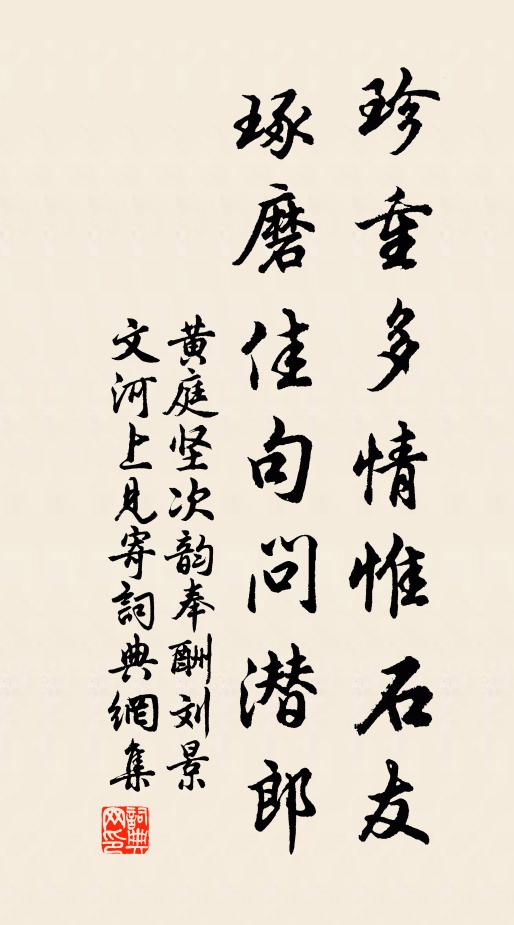 珍重多情惟石友
琢磨佳句问潜郎
黄庭坚次韵奉酬刘景
文河上见寄詞典網集
詞典网印